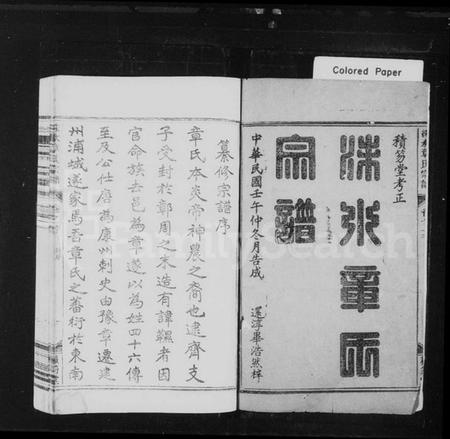 Colored Paper
積笏堂考正
洙水章氏
宗譜
中華民國壬午仲冬月告成
還淳畢浩然梓
纂修宗譜序
章氏本炎帝神農之裔也逮齊支
子受封於鄣周之末造有諱韅者因
官命族去邑為章遂以為姓四十六傳
至及公仕唐為康州刺史由豫章遷建
州浦城遂家焉吾章氏之蕃衍於東南
FamilySearch